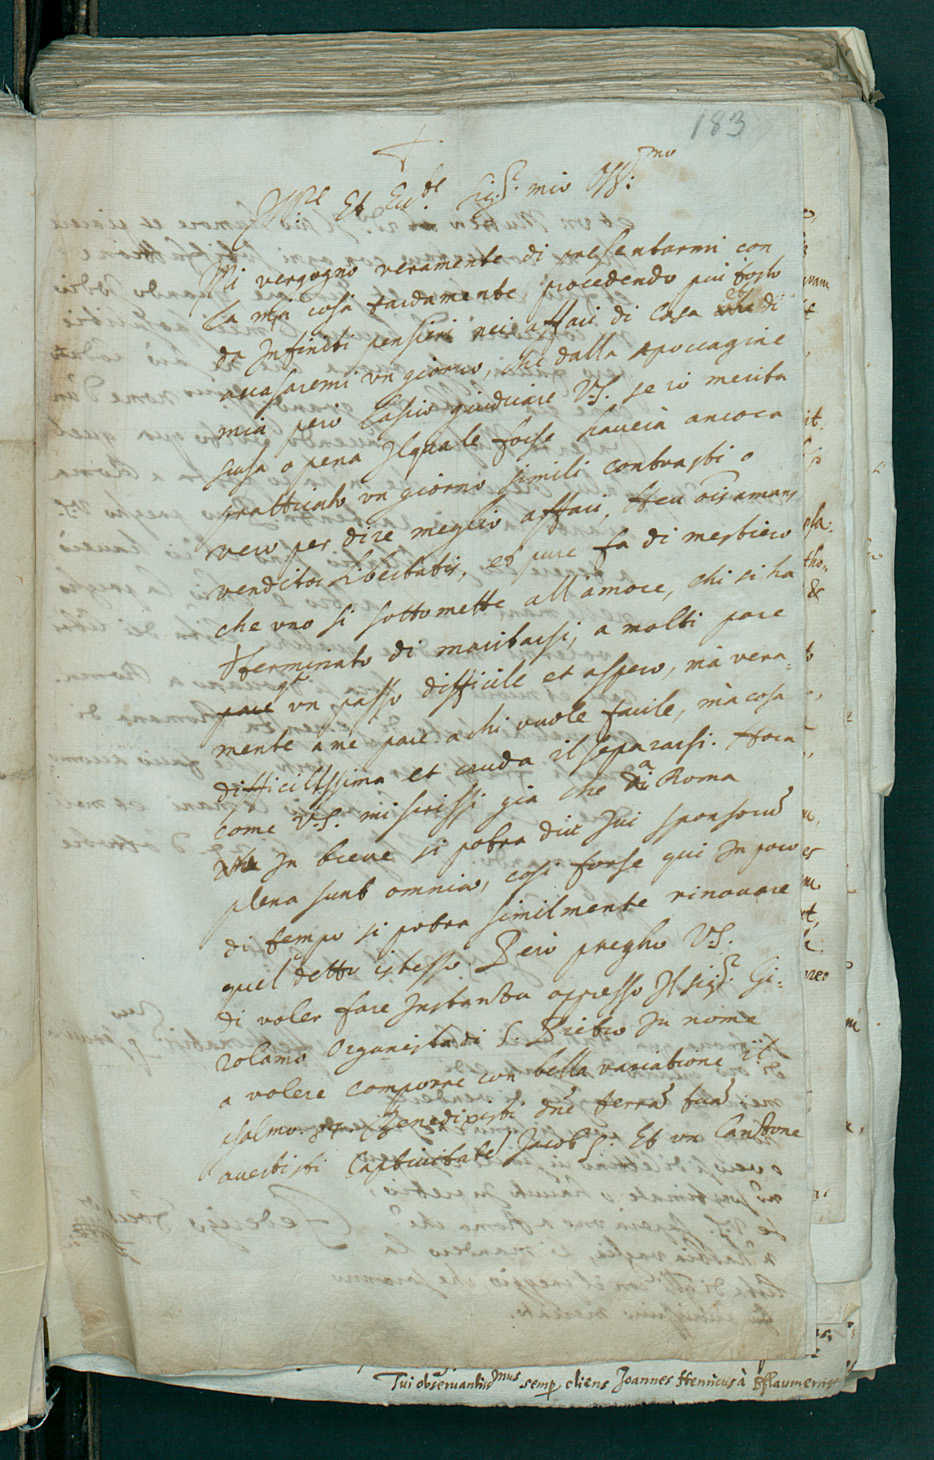 183
Ill.re Et Ecc.te Sig.r mio Oss.mo
Mi vergogno veramente di presentarmi con
la mia cosi tardamente, procedendo piu tosto
da Infiniti pensieri nei affari di Casa et di
accasaremi un giorno, che dalla apoccagine
mia però lascio giudicare V.S. se io merita
scusa o pena Il quale forse haverà ancora
pratticato un giorno simili contrasti o
vero per dire meglio affari, Heu o͠is amans
venditor libertatis, et pure fa di mestiero
che uno si sottomette all'amore, chi si ha
terminato di maritarsi, a molti pare
un passo difficile et aspero, mà vera-
mente à me pare a chi vuole facile, mà cosa
difficilissima et cruda il separarsi. Hora
come V.S. mi scrissi già che di Roma
In breve si potra dire Jui sponsoru͠
plena sunt omnia, cosi forse qui In poco
di tempo si potra similmente rinovare
quel detto istesso. Però pregho V.S.
di voler fare Instantia appresso Il Sig.r Gi-
rolamo Organista di S. Pietro In nome
a volere comporre con bella variatione il
salmo. 84 Benedixisti d͠ne terra͠ tua͠
avertisti Captivitate͠ Jacob &. Et un Canzone
Tui observantiss.mus semp. cliens Joannes Henricus à Pflaumern